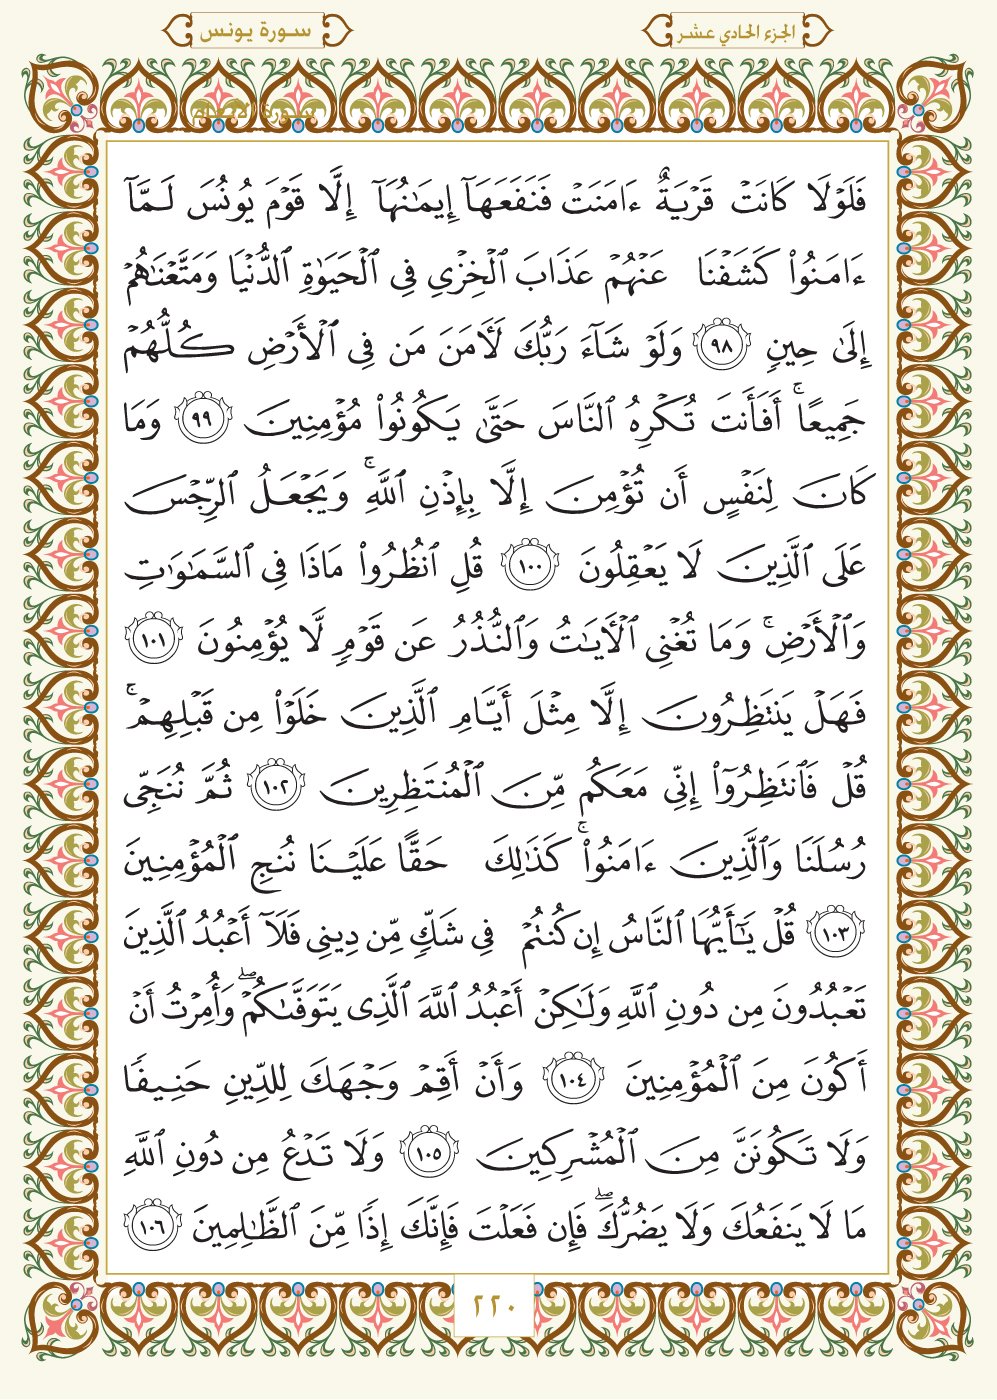 الجزء الحادي عشر
سورة يونس
فَلَوْلَا كَانَتْ قَرْيَةٌ ءَامَنَتْ فَنَفَعَهَآ إِيمَـٰنُهَآ إِلَّا قَوْمَ يُونُسَ لَمَّآ
ءَامَنُوا۟ كَشَفْنَا عَنْهُمْ عَذَابَ ٱلْخِزْىِ فِى ٱلْحَيَوٰةِ ٱلدُّنْيَا وَمَتَّعْنَـٰهُمْ
إِلَىٰ حِينٍ ٩٨ وَلَوْ شَآءَ رَبُّكَ لَـَٔامَنَ مَن فِى ٱلْأَرْضِ كُلُّهُمْ
جَمِيعًا ۚ أَفَأَنتَ تُكْرِهُ ٱلنَّاسَ حَتَّىٰ يَكُونُوا۟ مُؤْمِنِينَ ٩٩ وَمَا
كَانَ لِنَفْسٍ أَن تُؤْمِنَ إِلَّا بِإِذْنِ ٱللَّهِ ۚ وَيَجْعَلُ ٱلرِّجْسَ
عَلَى ٱلَّذِينَ لَا يَعْقِلُونَ ١٠٠ قُلِ ٱنظُرُوا۟ مَاذَا فِى ٱلسَّمَـٰوَٰتِ
وَٱلْأَرْضِ ۚ وَمَا تُغْنِى ٱلْـَٔايَـٰتُ وَٱلنُّذُرُ عَن قَوْمٍ لَّا يُؤْمِنُونَ ١٠١
فَهَلْ يَنتَظِرُونَ إِلَّا مِثْلَ أَيَّامِ ٱلَّذِينَ خَلَوْا۟ مِن قَبْلِهِمْ ۚ
قُلْ فَٱنتَظِرُوٓا۟ إِنِّى مَعَكُم مِّنَ ٱلْمُنتَظِرِينَ ١٠٢ ثُمَّ نُنَجِّى
رُسُلَنَا وَٱلَّذِينَ ءَامَنُوا۟ ۚ كَذَٰلِكَ حَقًّا عَلَيْنَا نُنجِ ٱلْمُؤْمِنِينَ
١٠٣ قُلْ يَـٰٓأَيُّهَا ٱلنَّاسُ إِن كُنتُمْ فِى شَكٍّ مِّن دِينِى فَلَآ أَعْبُدُ ٱلَّذِينَ
تَعْبُدُونَ مِن دُونِ ٱللَّهِ وَلَـٰكِنْ أَعْبُدُ ٱللَّهَ ٱلَّذِى يَتَوَفَّىٰكُمْ ۖ وَأُمِرْتُ أَنْ
أَكُونَ مِنَ ٱلْمُؤْمِنِينَ ١٠٤ وَأَنْ أَقِمْ وَجْهَكَ لِلدِّينِ حَنِيفًا
وَلَا تَكُونَنَّ مِنَ ٱلْمُشْرِكِينَ ١٠٥ وَلَا تَدْعُ مِن دُونِ ٱللَّهِ
مَا لَا يَنفَعُكَ وَلَا يَضُرُّكَ ۖ فَإِن فَعَلْتَ فَإِنَّكَ إِذًا مِّنَ ٱلظَّـٰلِمِينَ ١٠٦
٢٢٠